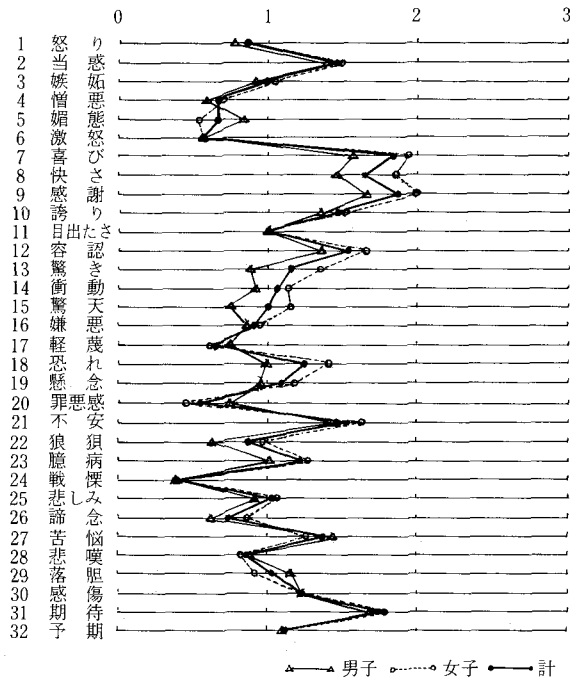 0 1 2 3
1 怒り
2 当惑
3 嫉妬
4 憎悪
5 媚態
6 激怒
7 喜び
8 快さ
9 感謝
10 誇り
11 目出たさ
12 容認
13 驚き
14 衝動
15 驚天
16 嫌悪
17 軽蔑
18 恐れ
19 懸念
20 罪悪感
21 不安
22 狼狽
23 臆病
24 戦慄
25 悲しみ
26 諦念
27 苦悩
28 悲嘆
29 落胆
30 感傷
31 期待
32 予期
男子 女子 計